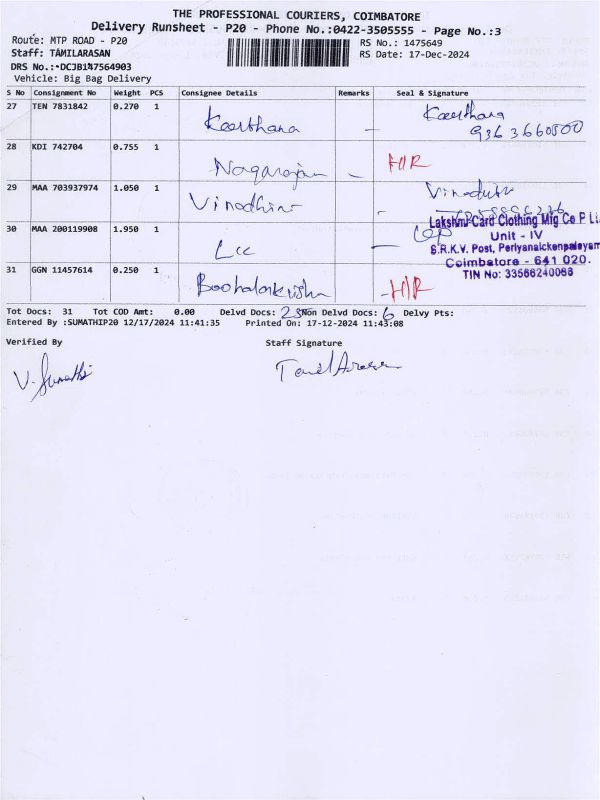 THE PROFESSIONAL COURIERS, COIMBATORE
Delivery Runsheet - P20 - Phone No.:0422-3505555 - Page No.:3
Route: MTP ROAD - P20
RS No.: 1475649
Staff: TAMILARASAN
RS Date: 17-Dec-2024
DRS No.: DCJB147564903
Vehicle: Big Bag Delivery
S No Consignment No Weight PCS Consignee Details Remarks Seal & Signature
27 TEN 7831842 0.270 1 Keerthana - Keerthana
9363660500
28 KDI 742704 0.755 1 Nagarajan - H/R
29 MAA 703937974 1.050 1 Vinodhini -
30 MAA 200119908 1.950 1 Lcc -
Lakshmi Card Clothing Mfg Co P Lt
Unit - IV
S.R.K.V. Post, Periyanaickenpalayam
Coimbatore - 641 020.
TIN No: 33566240068
31 GGN 11457614 0.250 1 - H/R
Tot Docs: 31 Tot COD Amt: 0.00 Delvd Docs: 25 Non Delvd Docs: 6 Delvy Pts:
Entered By :SUMATHIP20 12/17/2024 11:41:35 Printed On: 17-12-2024 11:43:08
Verified By Staff Signature
V. Sumathi